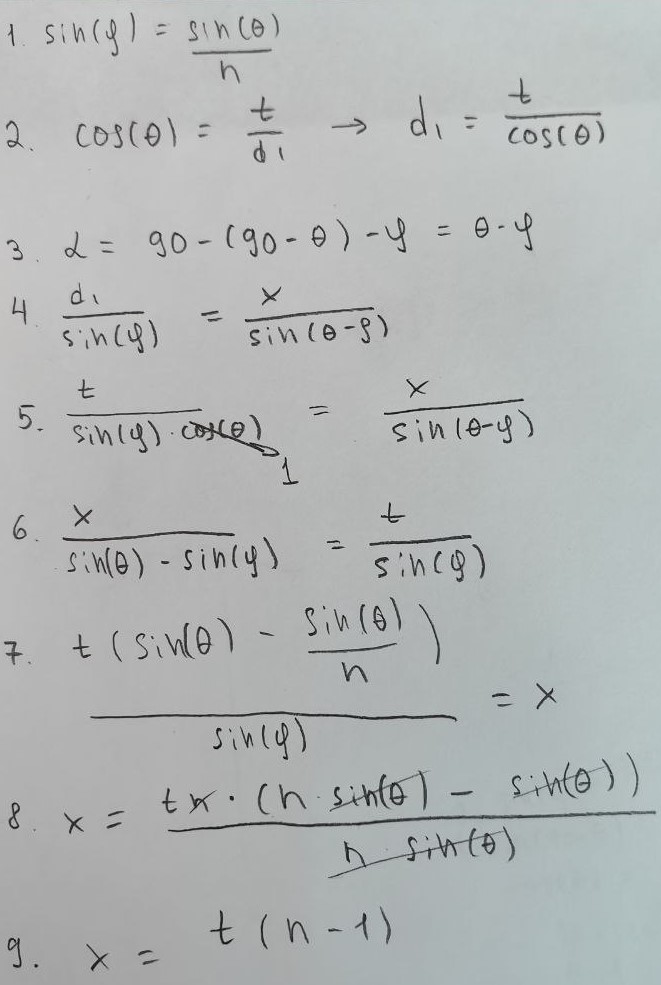 1. sin(φ) = sin(θ)/n
2. cos(θ) = t/d₁ → d₁ = t/cos(θ)
3. α = 90 - (90 - θ) - φ = θ - φ
4 d₁/sin(φ) = x/sin(θ-φ)
5. t/(sin(φ) · cos(θ)) = x/sin(θ-φ)
1
6. x/(sin(θ) - sin(φ)) = t/sin(φ)
7. t(sin(θ) - sin(θ)/n)/sin(φ) = x
8. x = tn · (n · sin(θ) - sin(θ))/(n · sin(θ))
9. x = t(n-1)